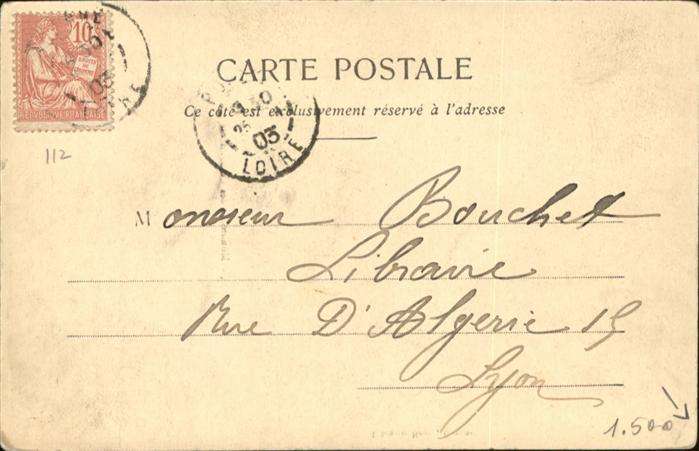 10
REPUBLIQUE FRANÇAISE
CARTE POSTALE
Ce côté est exclusivement réservé à l'adresse
03
LOIRE
112
Monsieur Bouchet
Libraire
Rue D'Algerie 15
Lyon
1.500